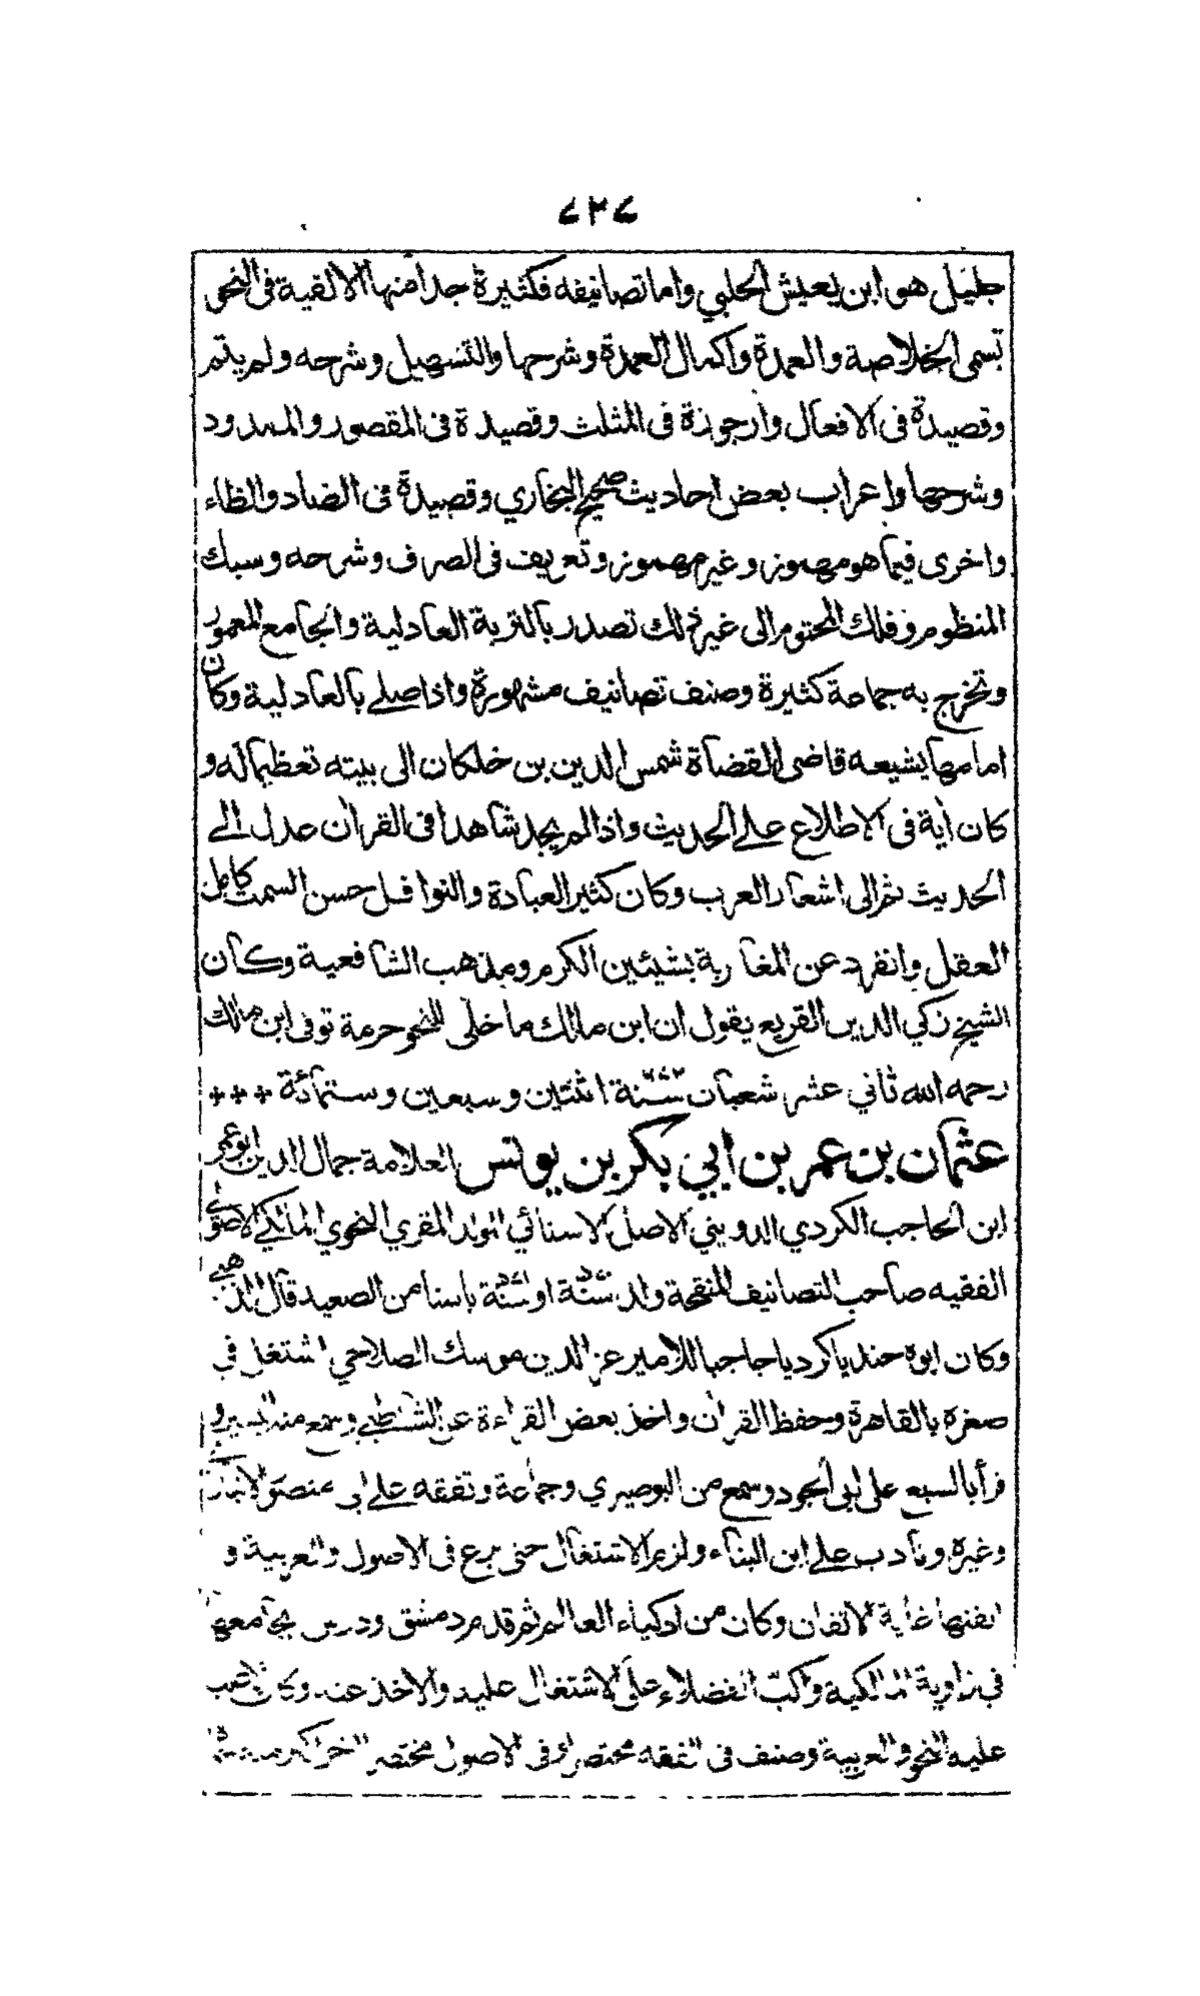 ٤٣٤
جليل هو ابن يعيش الحلبي واما تصانيفه فكثيرة جدا منها الالفية فى النحو
تسمى الخلاصة والعمدة واكمال العمدة وشرحها والتسهيل وشرحه ولم يتم
وقصيدة فى الافعال وارجوزة فى المثلث وقصيدة فى المقصور والممدود
وشرحها واعراب بعض احاديث صحيح البخاري وقصيدة فى الضاد والظاء
واخرى فيما هو مهموز وغير مهموز وتعريف فى الصرف وشرحه وسبك
المنظوم وفك المختوم الى غير ذلك تصدر بالتربة العادلية والجامع المعمور
وتخرج به جماعة كثيرة وصنف تصانيف مشهورة واذا صلے بالعادلية وكان
امامها يشيعه قاضى القضاة شمس الدين بن خلكان الى بيته تعظيما له و
كان اٰية فى الاطلاع علے الحديث واذا لم يجد شاهدا فى القراٰن عدل الے
الحديث ثم الى اشعار العرب وكان كثير العبادة والنوافل حسن السمت كامل
العقل وانفرد عن المغاربة بشيئين الكرم ومذهب الشافعية وكان
الشيخ زكي الدين القريع يقول ان ابن مالك ما خلّى للنحو حرمة توفى ابن مالك
رحمه الله ثاني عشر شعبان سنة اثنتين وسبعين وستمائة ***
عثمان بن عمر بن ابي بكر بن يونس العلامة جمال الدين ابو عمر
ابن الحاجب الكردي الدويني الاصل الاسنائي المولد المقري النحوي المالكي الاصولے
الفقيه صاحب التصانيف المنقحة ولد سنة او سنة باسنا من الصعيد قال الذهبے
وكان ابوه جنديا كرديا حاجبا للامير عز الدين موسك الصلاحي اشتغل في
صغره بالقاهرة وحفظ القراٰن واخذ بعض القراءة عن الشاطبے وسمع منه اليسير و
قرأ بالسبع على ابى الجود وسمع من البوصيري وجماعة وتفقه علے ابى منصور الابياري
وغيره وتأدب علے ابن البناء ولزم الاشتغال حتى برع فى الاصول والعربية و
اتقنها غاية الاتقان وكان من اذكياء العالم ثم قدم دمشق ودرس بجامعها
فى زاوية المالكية واكبّ الفضلاء على الاشتغال عليه والاخذ عنه وكان الاغلب
عليه النحو والعربية وصنف فى الفقه مختصرا وفى الاصول مختصرا اٰخر اكبر منه